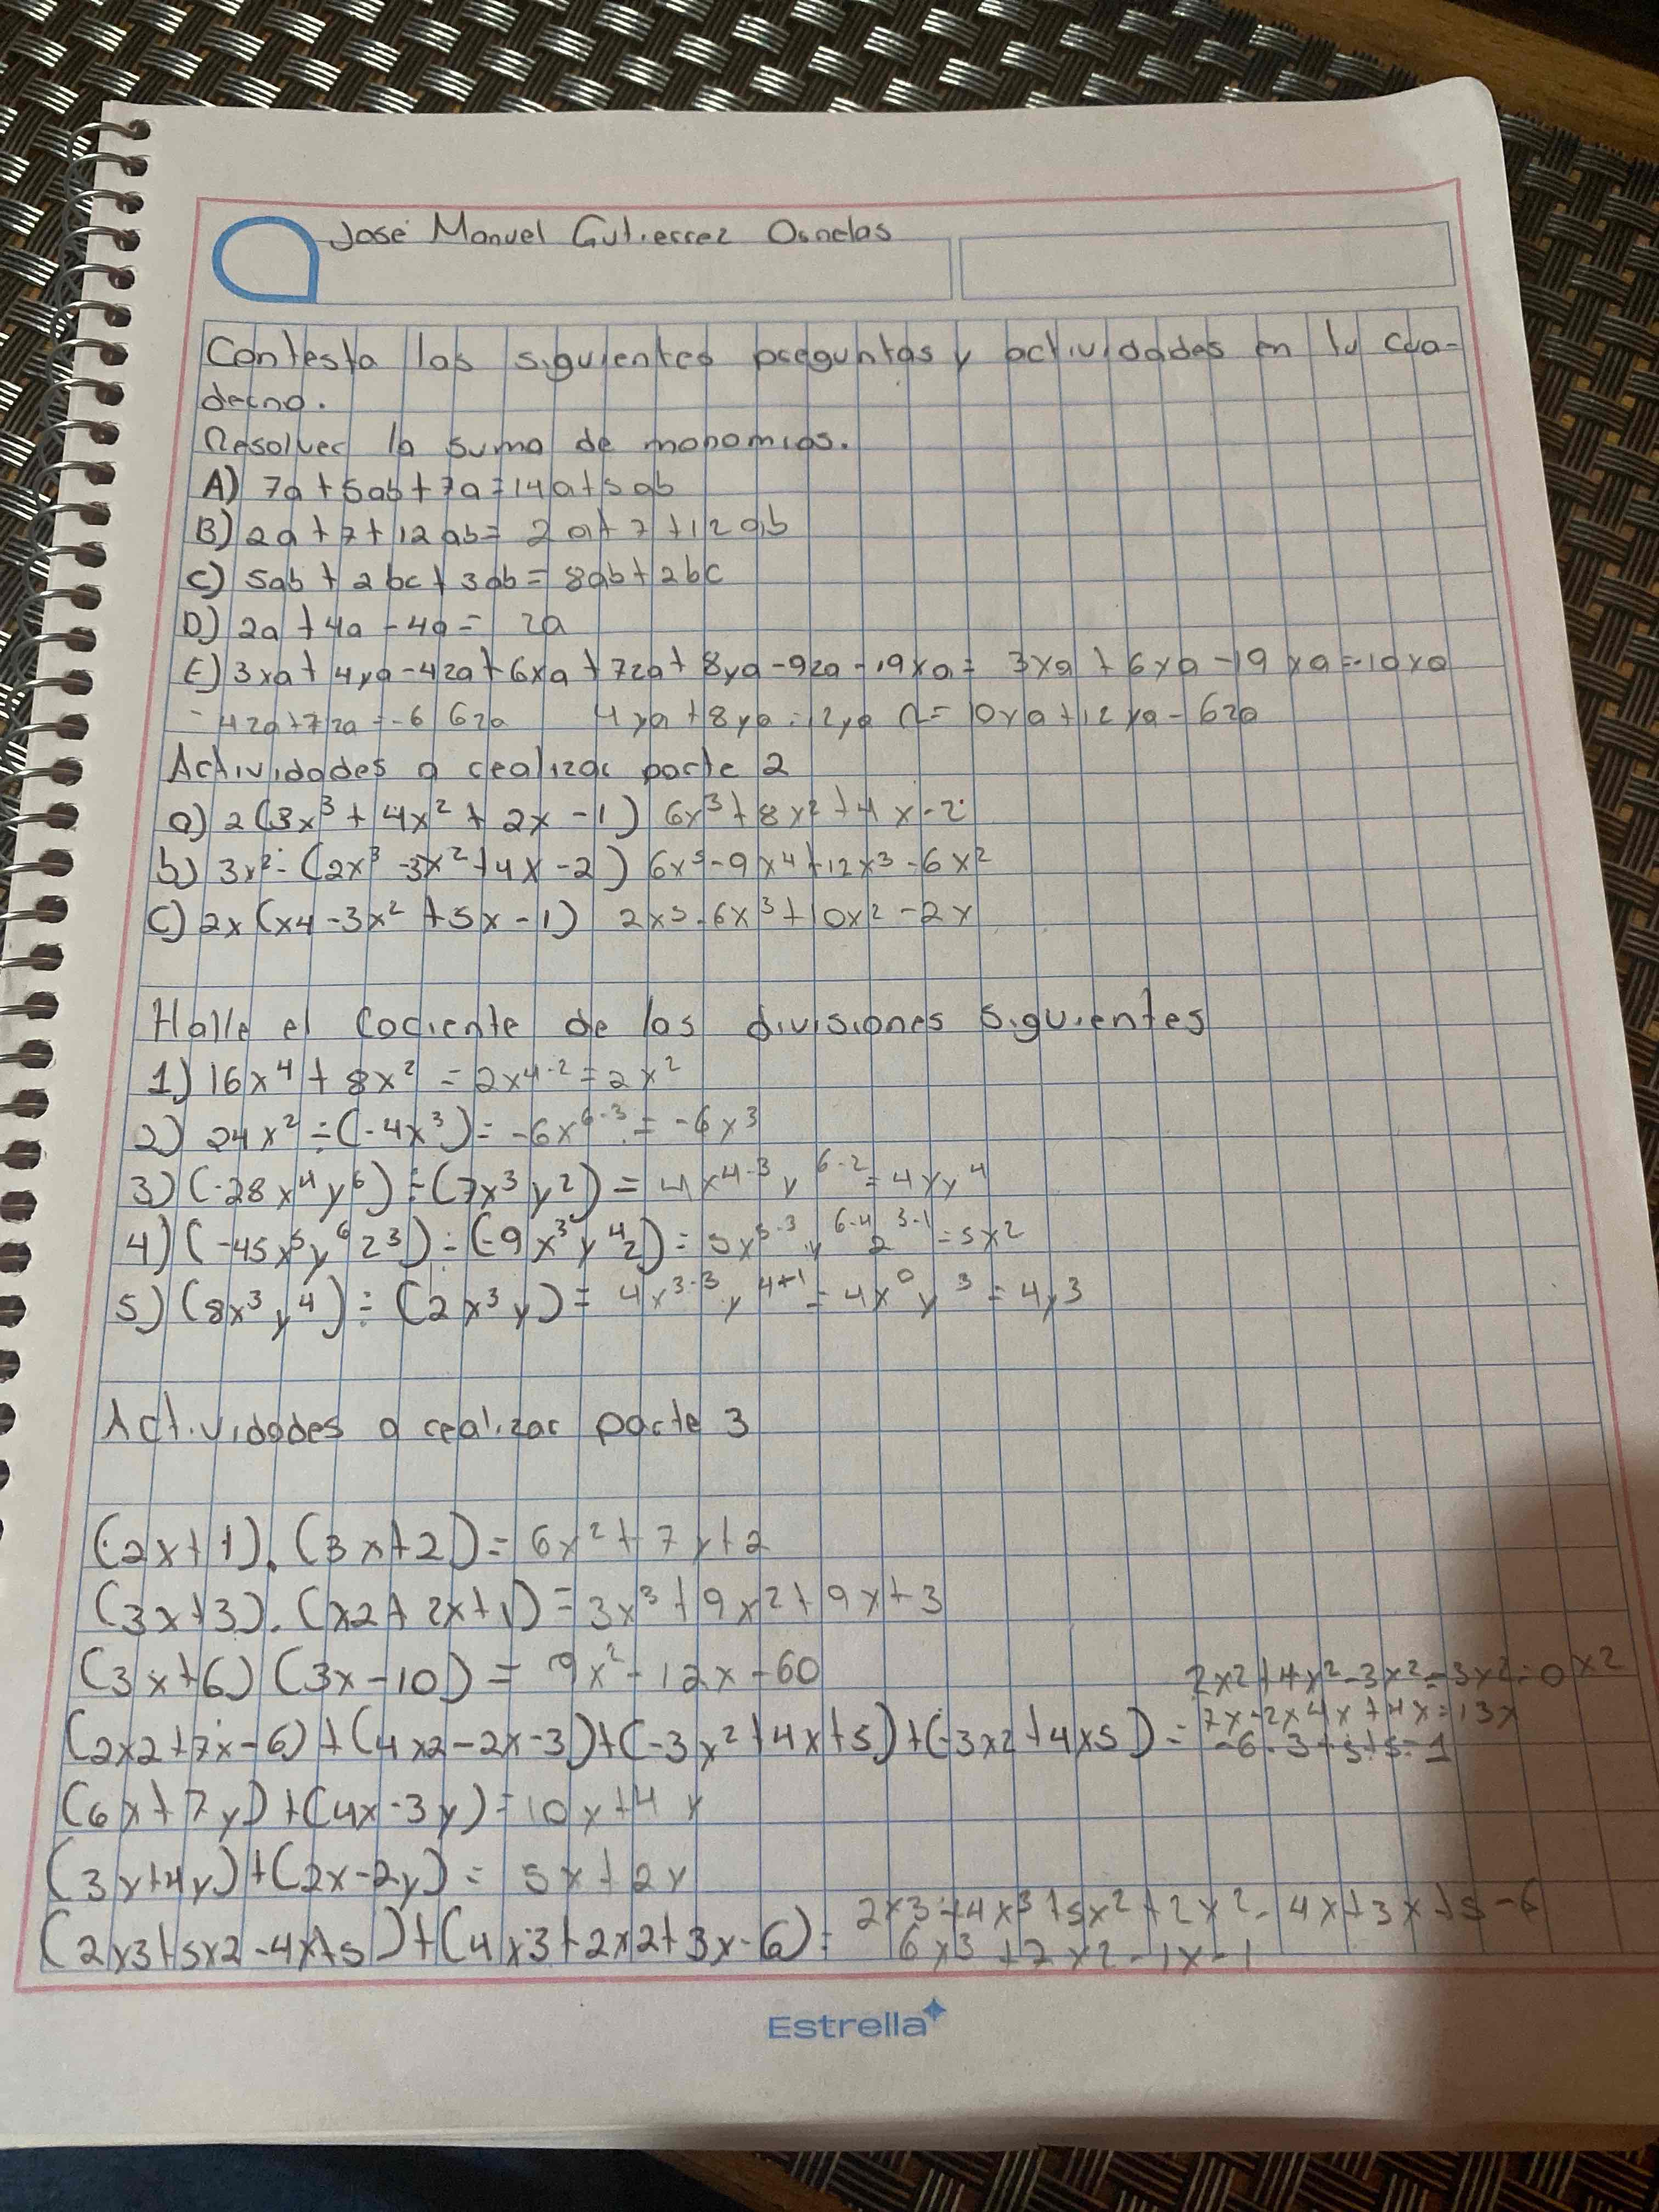 José Manuel Gutierrez Ornelas
Contesta las siguientes preguntas y actividades en tu cua-
derno.
Resolver la suma de monomios.
A) 7a+5ab+7a=14a+5ab
B) 2a+7+12ab= 2a+7+12ab
C) 5ab+2bc+3ab=8ab+2bc
D) 2a+4a-4a= 2a
E) 3xa+4ya-4za+6xa+7za+8ya-9za-19xa= 3xa+6xa-19xa=-10xa
-4za+7za=-6 6za 4ya+8ya=12ya R=10xa+12ya-6za
Actividades a realizar parte 2
a) 2(3x³+4x²+2x-1) 6x³+8x²+4x-2
b) 3x²-(2x³-3x²+4x-2) 6x⁵-9x⁴+12x³-6x²
C) 2x(x4-3x²+5x-1) 2x5-6x³+10x²-2x
Halle el cociente de las divisiones siguientes
1) 16x⁴+8x²=2x⁴⁻²=2x²
2) 24x²÷(-4x³)=-6x⁶⁻³=-6x³
3) (-28x⁴y⁶)÷(7x³y²)=4x⁴⁻³y⁶⁻²=4xy⁴
4) (-45x⁵y⁶z³)÷(-9x³y⁴z)=5x⁵⁻³y⁶⁻⁴z³⁻¹=5x²
5) (8x³y⁴)÷(2x³y)=4x³⁻³y⁴⁺¹=4x⁰y³=4y3
Actividades a realizar parte 3
(2x+1).(3x+2)=6x²+7x+2
(3x+3).(x2+2x+1)=3x³+9x²+9x+3
(3x+6)(3x-10)=9x²-12x-60
2x2+4x²-3x²-3x²=0x2
7x-2x4x+4x=13x
(2x2+7x-6)+(4x2-2x-3)+(-3x²+4x+5)+(-3x2+4x5)= -6-3+5+5=1
(6x+7y)+(4x-3y)=10x+4y
(3x+4y)+(2x-2y)=5x+2y
2x3+4x³+5x²+2x²-4x+3x+5-6
(2x3+5x2-4x+5)+(4x3+2x2+3x-6)= 6x3+7x2-1x-1
Estrella